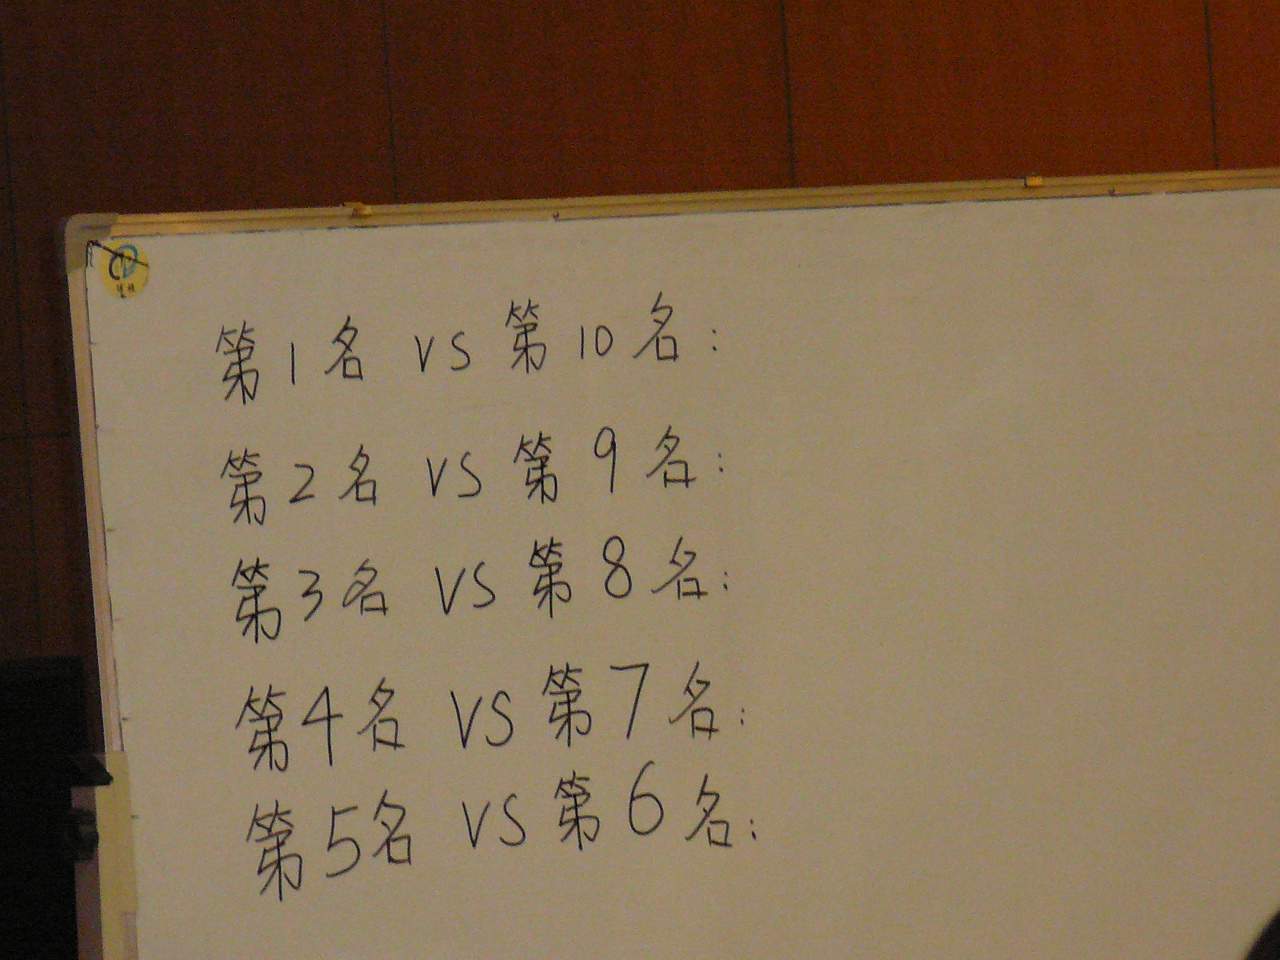 第1名 VS 第10名:
第2名 VS 第9名:
第3名 VS 第8名:
第4名 VS 第7名:
第5名 VS 第6名: